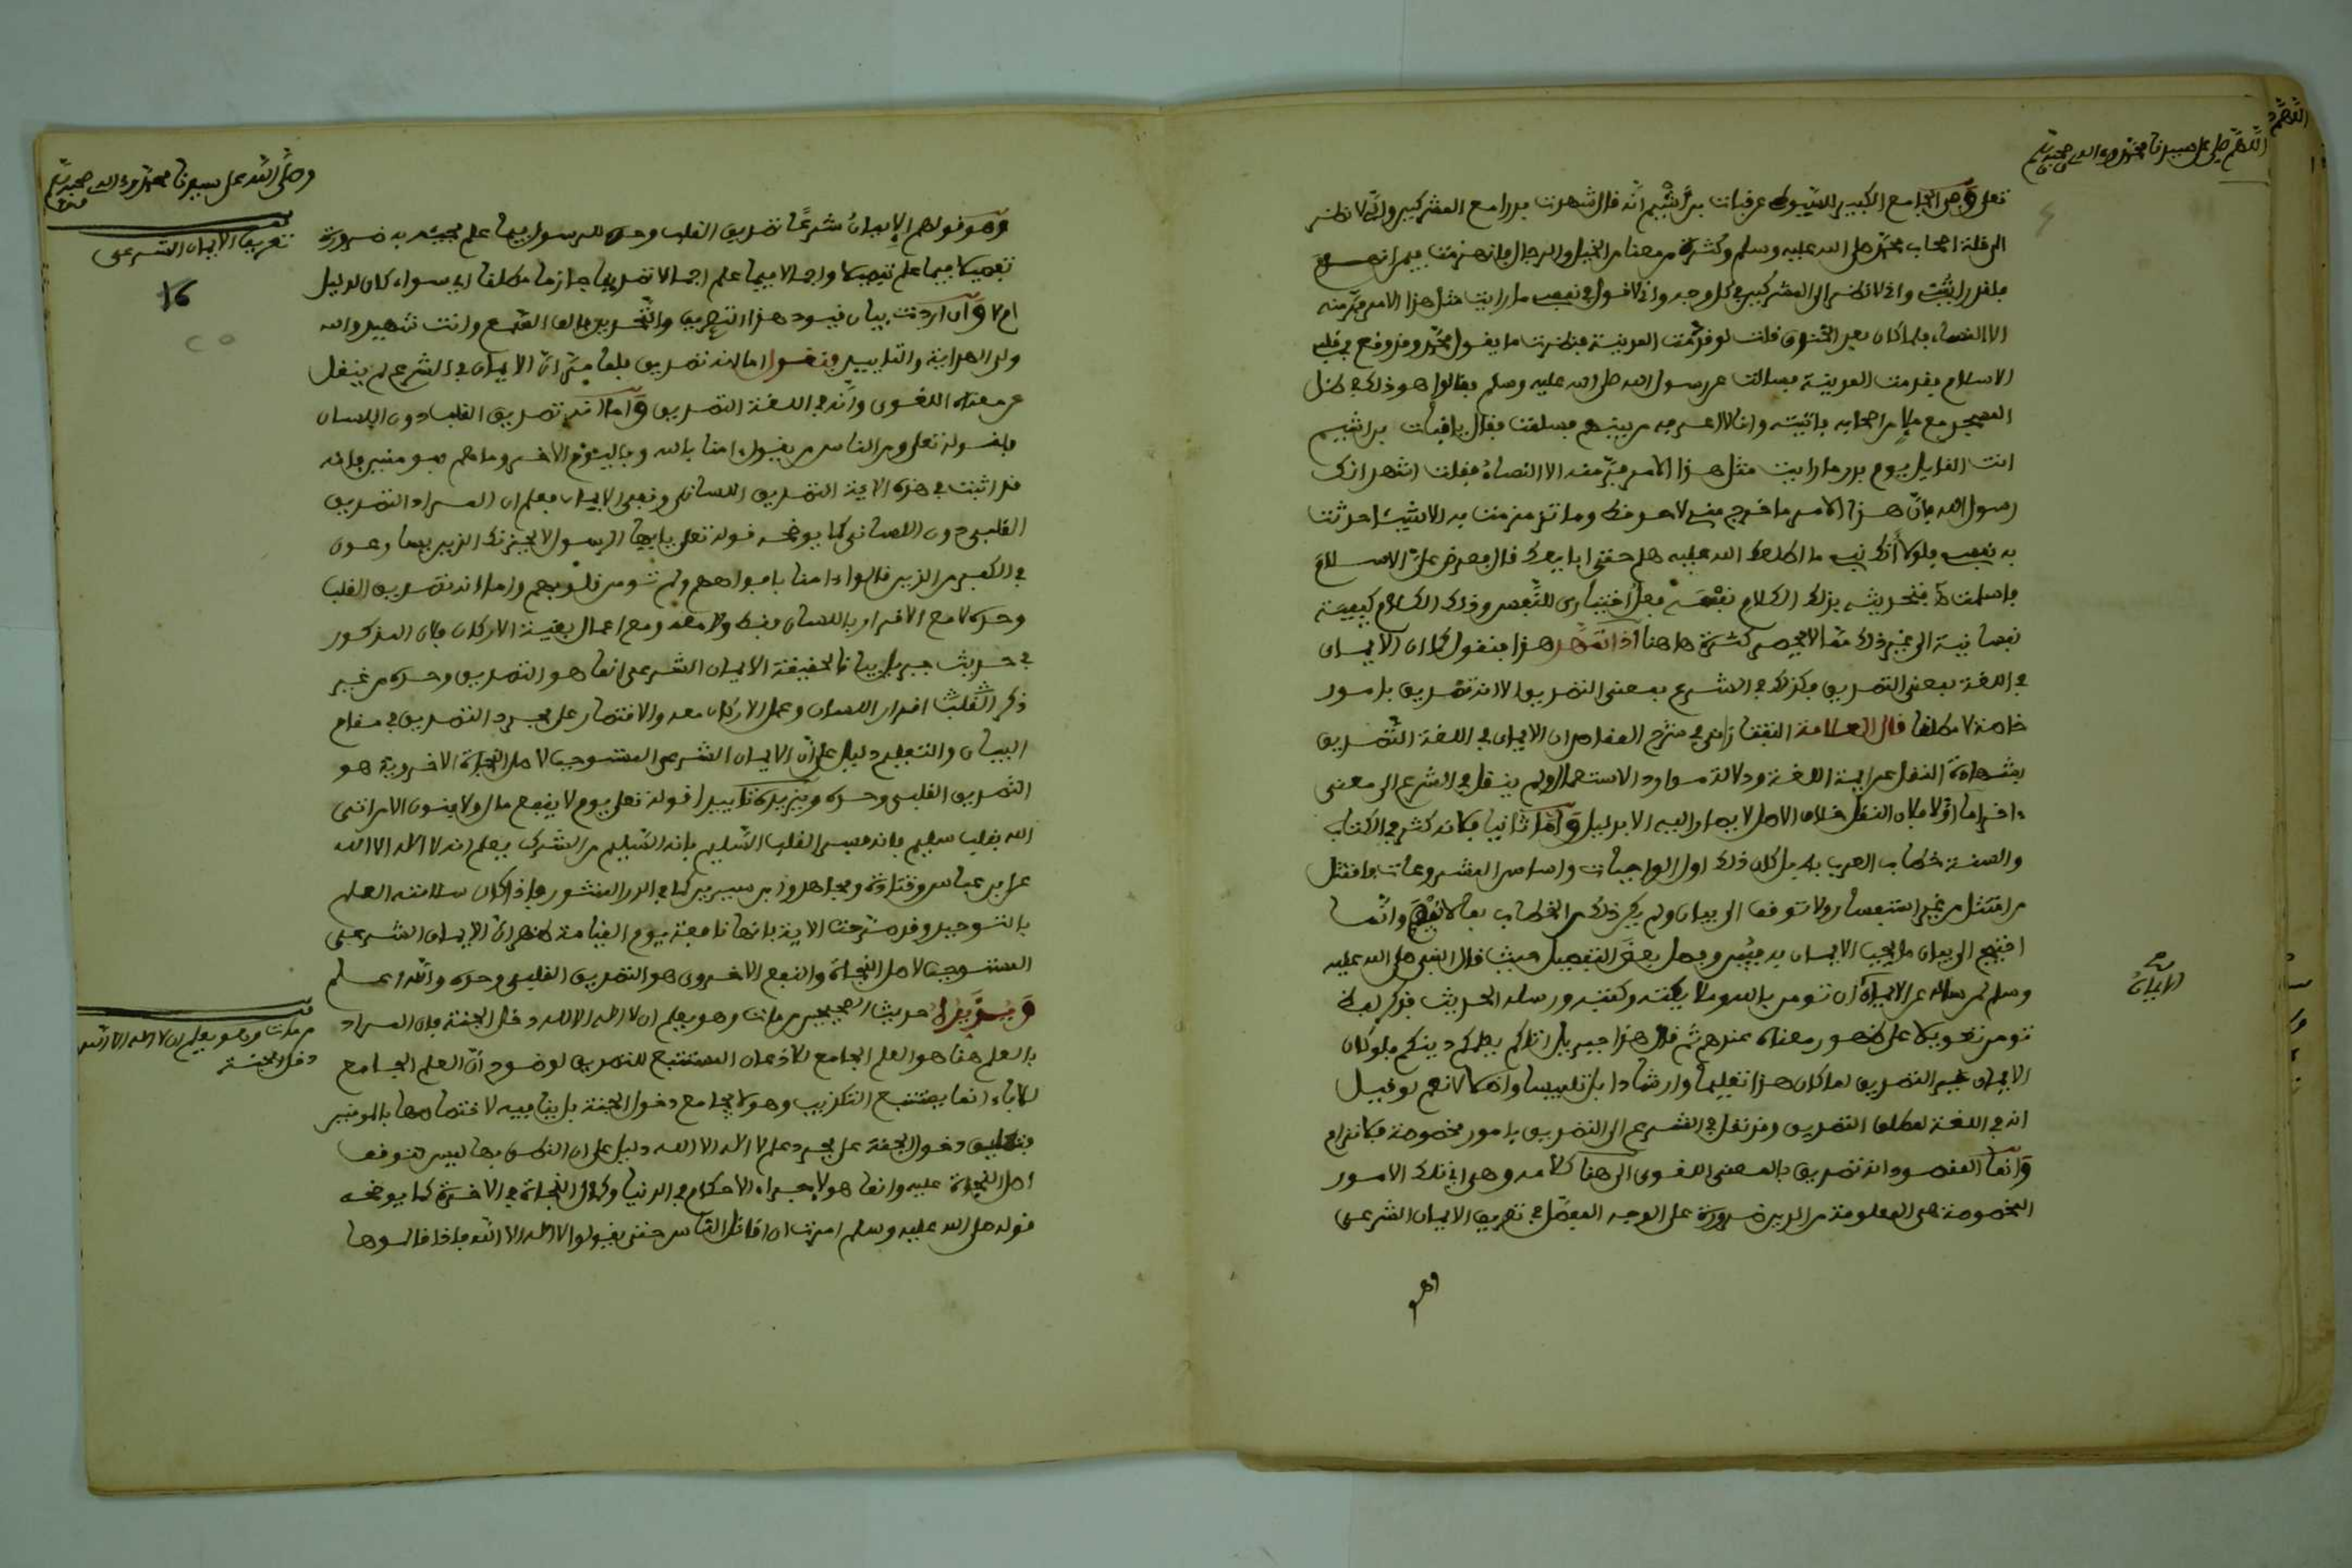 اللهم صل على سيدنا محمد وءاله وصحبه وسلم
تعلى وفي الجامع الكبير للسيوطي عن قباث بن أشيم أنه قال شهدت بدرا مع المشركين وإني لانظر
الى قلة اصحاب محمد صلى الله عليه وسلم وكثرة من معنا من الخيل والرجال فانهزمت فيمن انهزم
فلقد رايتني وانى لانظر الى المشركين في كل وجه وانى لاقول في نفسي ما رايت مثل هذا الامر فر منه
الا النساء فلما كان بعد الخندق قلت لو قدمت المدينة فنظرت ما يقول محمد وقد وقع في قلبي
الاسلام فقدمت المدينة فسالت عن رسول الله صلى الله عليه وسلم فقالوا هو ذلك في ظل
المسجد مع ملإ من اصحابه فاتيته وانا لا اعرفه من بينهم فسلمت فقال يا قباث بن اشيم
انت القايل يوم بدر ما رايت مثل هذا الامر فر منه الا النساء فقلت اشهد انك
رسول الله فان هذا الامر ما خرج مني لاحد قط وما تزمزمت به الا شيئا حدثت
به نفسي فلولا أنك نبي ما اطلعك الله عليه هلم حتى ابايعك فال فعرض علي الاسلام
فاسلمت فتحديثه بذلك الكلام نفسه فعل اختياري للنفس وذلك الكلام كيفية
نفسانية الى غير ذلك مما لا نحصر كثرة ها هنا اذا تمهد هذا فنقول كما ان الايمان
في اللغة بمعنى التصديق فكذلك في الشرع بمعنى التصديق الا انه تصديق بامور
خاصة لا مطلقا قال العلامة التفتازاني في شرح المقاصد ان الايمان في اللغة التصديق
بشهادة النقل عن ايمة اللغة ودلالة موارد الاستعمال ولم ينقل في الشرع الى معنى
ءاخر اما اولا فلان النقل خلاف الاصل لا يصار اليه الا بدليل واما ثانيا فلانه كثر في الكتاب
والسنة خطاب العرب به بل كان ذلك اول الواجبات واساس المشروعات فامتثل
من امتثل من غير استفسار ولا توقف الى بيان ولم يكن ذلك من الخطاب بما لا يفهم وانما
احتيج الى بيان ما يجب الايمان به فبين وفصل بعض التفصيل حيث قال النبي صلى الله عليه
وسلم لمن ساله عن الايمان ان تومن بالله وملايكته وكتبه ورسله الحديث فذكر لفظ
تومن تعويلا على ظهور معناه عندهم ثم قال هذا جبريل اتاكم يعلمكم دينكم فلو كان
الايمان غير التصديق لما كان هذا تعليما وارشادا بل تلبيسا واضلالا نعم لو قيل
انه في اللغة لمطلق التصديق وقد نقل في الشرع الى التصديق بامور مخصوصة فلا نزاع
وانما المقصود انه تصديق بالمعنى اللغوي الى هنا كلامه وهو اي تلك الامور
المخصوصة هي المعلومة من الدين ضرورة على الوجه المفصل في تعريف الايمان الشرعي
وهو
الايمان
وصلى الله على سيدنا محمد وءاله وصحبه وسلم
تعريف الايمان الشرعي
16
وهو قولهم الايمان شرعا تصديق القلب وحده للرسول فيما علم مجيئه به ضرورة
تفصيلا فيما علم تفصيلا واجمالا فيما علم اجمالا تصديقا جازما مطلقا اي سواء كان لدليل
ام لا وان اردت بيان قيود هذا التعريف والتحرير فالق السمع وانت شهيد والله
ولي الهداية والتاييد فنقول اما انه تصديق فلما مر ان الايمان في الشرع لم ينقل
عن معناه اللغوي وانه في اللغة التصديق واما انه تصديق القلب دون اللسان
فلقوله تعلى ومن الناس من يقول ءامنا بالله وباليوم الاخر وما هم بمومنين فانه
قد اثبت في هذه الاية التصديق اللساني ونفى الايمان فعلم ان المراد التصديق
القلبي دون اللساني كما يوضحه قوله تعلى يايها الرسول لا يحزنك الذين يسارعون
في الكفر من الذين قالوا ءامنا بافواههم ولم تومن قلوبهم واما انه تصديق القلب
وحده لا مع الاقرار باللسان فقط ولا معه ومع اعمال بقية الاركان فلان المذكور
في حديث جبريل بيانا لحقيقة الايمان الشرعي انما هو التصديق وحده من غير
ذكر اقرار اللسان وعمل الاركان معه والاقتصار على مجرد التصديق في مقام
البيان والتعليم دليل على ان الايمان الشرعي المستوجب لاصل النجاة الاخروية هو
التصديق القلبي وحده ويزيده تاييدا قوله تعلى يوم لا ينفع مال ولا بنون الا من اتى
الله بقلب سليم فانه فسر القلب السليم بانه السليم من الشرك يعلم انه لا اله الا الله
عن ابن عباس وقتادة ومجاهد وابن سيرين كما في الدر المنثور فاذا كان سلامته العلم
بالتوحيد وقد صرحت الاية بانها نافعة يوم القيامة ظهر ان الايمان الشرعي
المستوجب لاصل النجاة والنفع الاخروي هو التصديق القلبي وحده والله اعلم
ويؤيده حديث الصحيحين من مات وهو يعلم ان لا اله الا الله دخل الجنة فان المراد
بالعلم هنا هو العلم الجامع للاذعان المستتبع للتصديق لوضوح ان العلم الجامع
للاباء انما يستتبع التكذيب وهو لا يجامع دخول الجنة بل ينافيه لاختصاصها بالمومنين
فتعليق دخول الجنة على مجرد علم لا اله الا الله دليل على ان النطق بها ليس يتوقف
اصل النجاة عليه وانما هو لاجراء الاحكام في الدنيا وكمال النجاة في الاخرة كما يوضحه
قوله صلى الله عليه وسلم امرت ان اقاتل الناس حتى يقولوا لا اله الا الله فاذا قالوها
من مات وهو يعلم ان لا اله الا الله
دخل الجنة